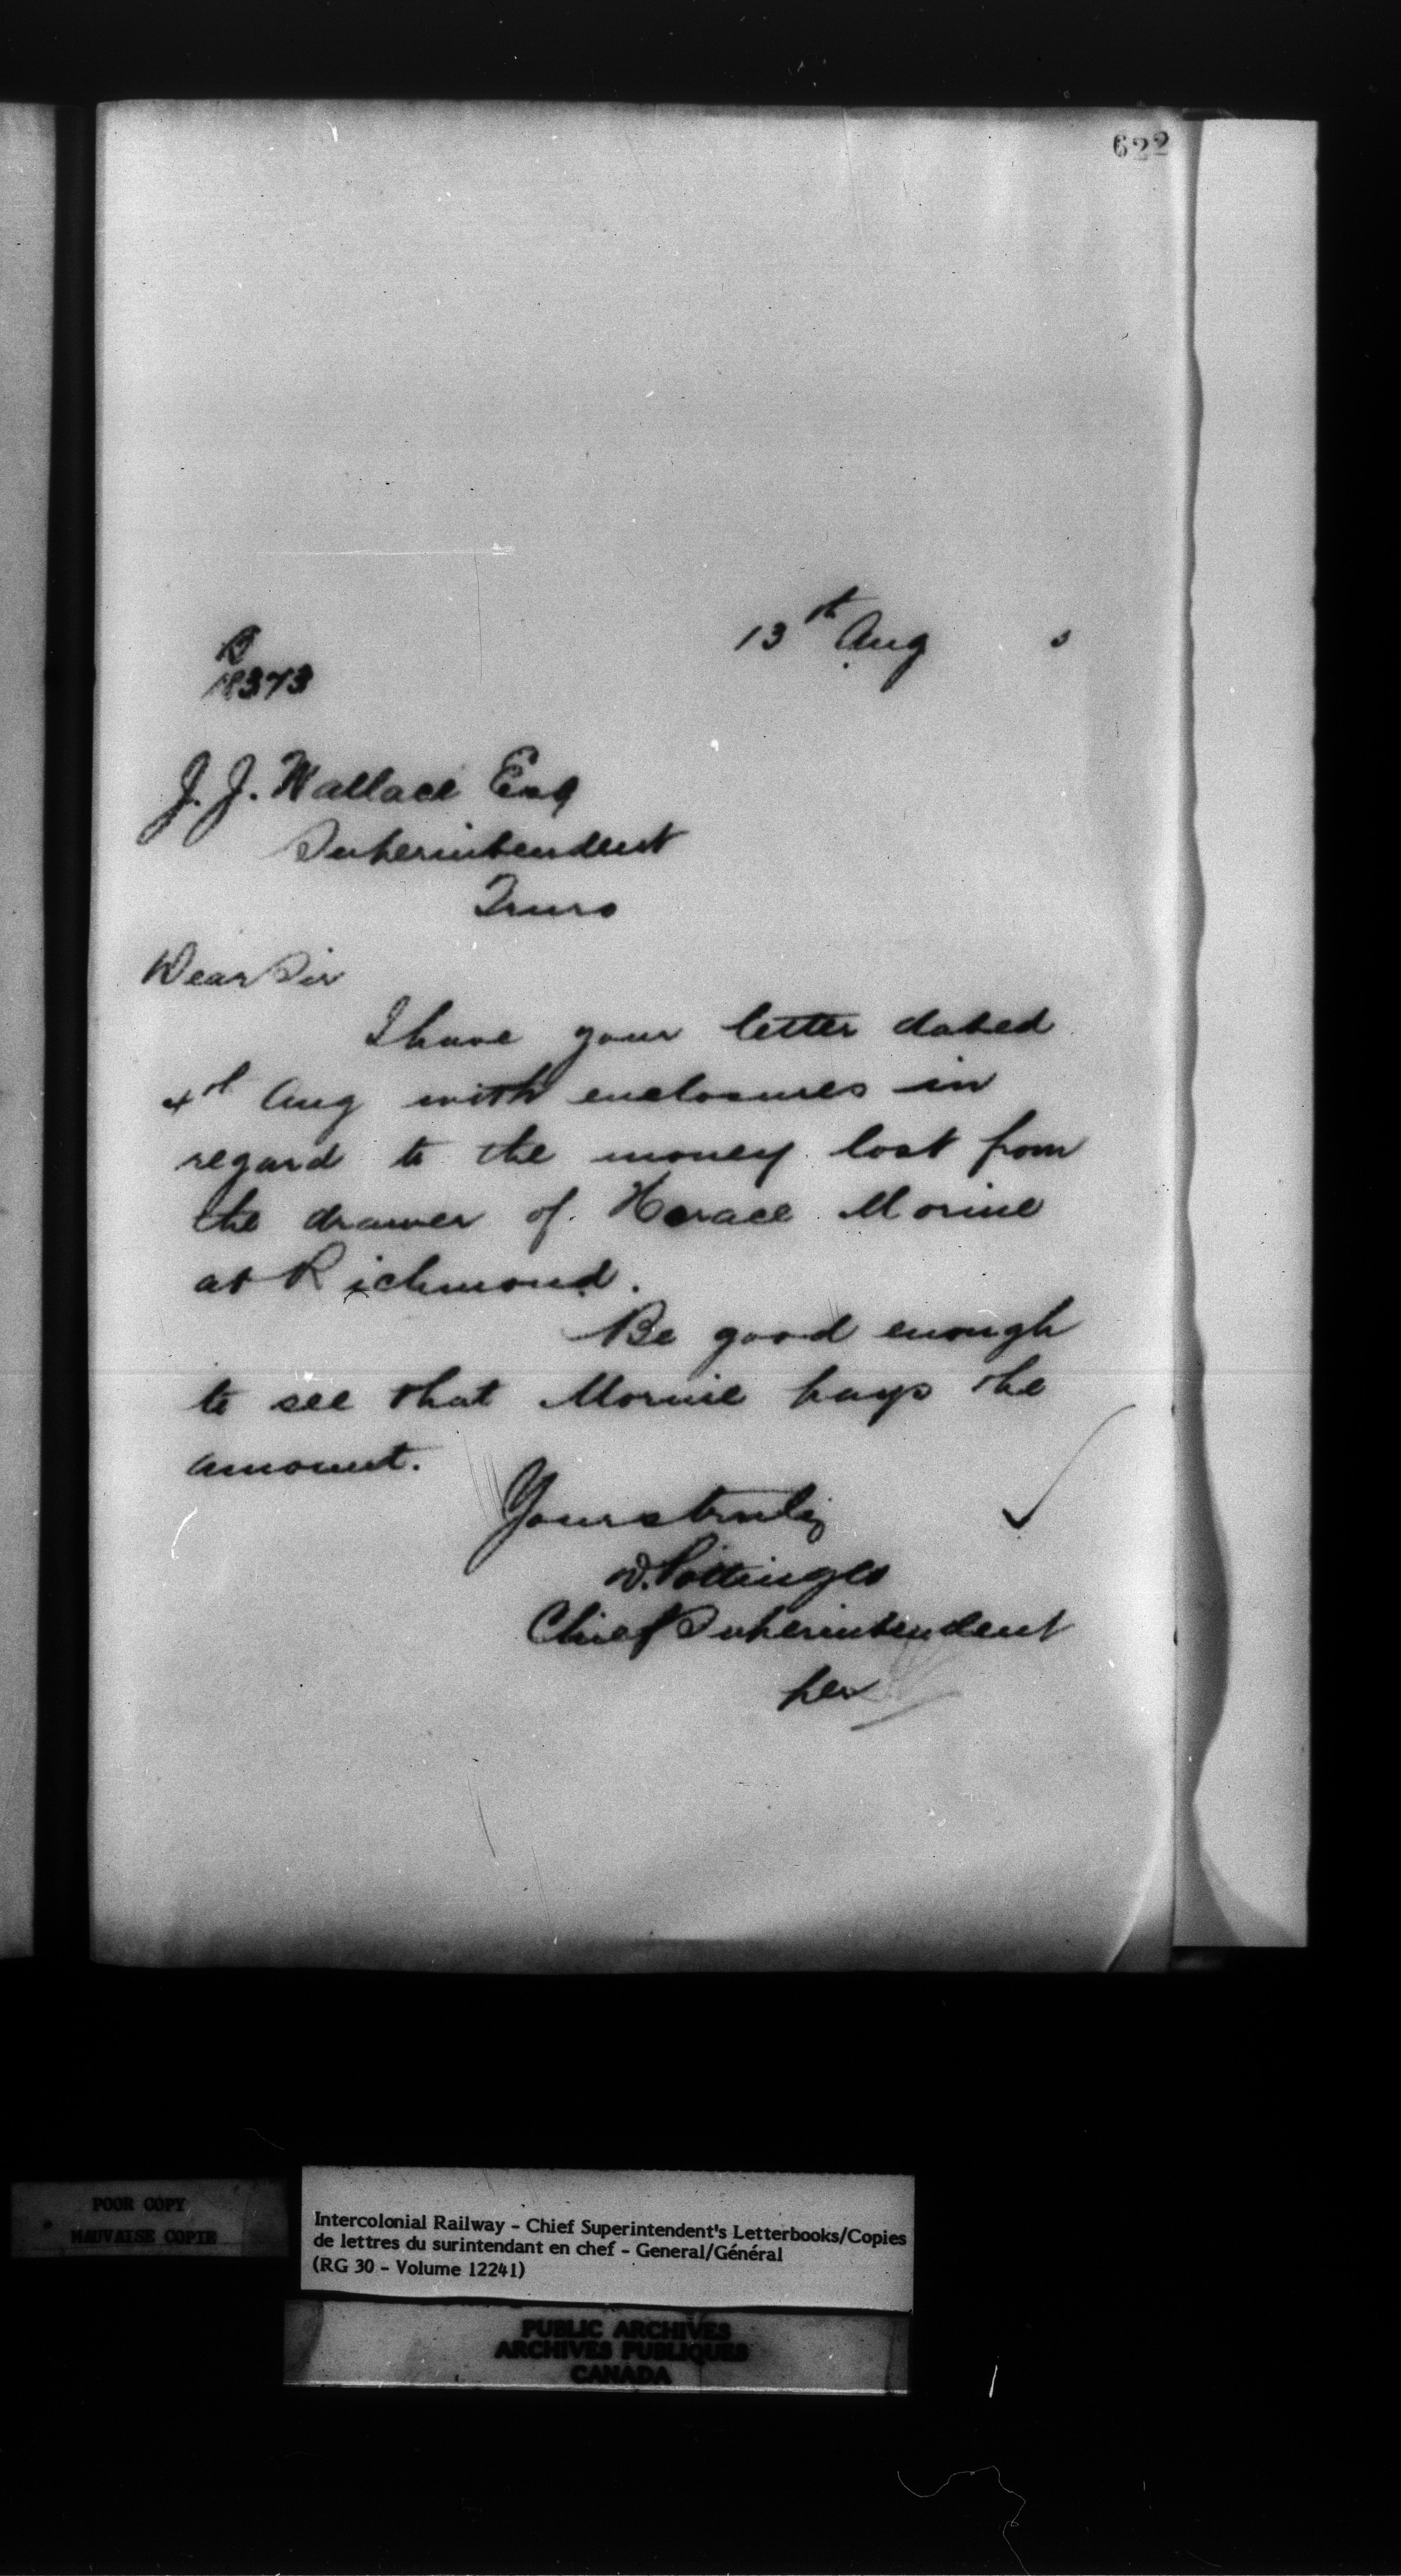 622
13th Aug
18373
J. J. Wallace Esq
Superintendent
Truro
Dear Sir
I have your letter dated
4th Aug with enclosures in
regard to the money lost from
the drawer of Horace Morine
at Richmond.
Be good enough
to see that Morine pays the
amount.
Yours truly
D. Pottinger
Chief Superintendent
per
POOR COPY
MAUVAISE COPIE
Intercolonial Railway - Chief Superintendent's Letterbooks/Copies
de lettres du surintendant en chef - General/Général
(RG 30 - Volume 12241)
PUBLIC ARCHIVES
ARCHIVES PUBLIQUES
CANADA